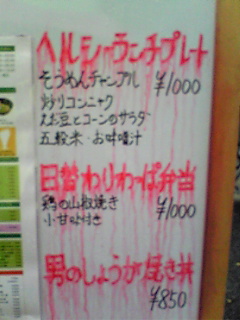 ヘルシーランチプレート
そうめんチャンプル
¥1000
炒りコンニャク
大豆とコーンのサラダ
五穀米・お味噌汁
日替わりわっぱ弁当
鶏の山椒焼き
¥1000
小甘味付き
男のしょうが焼き丼
¥850